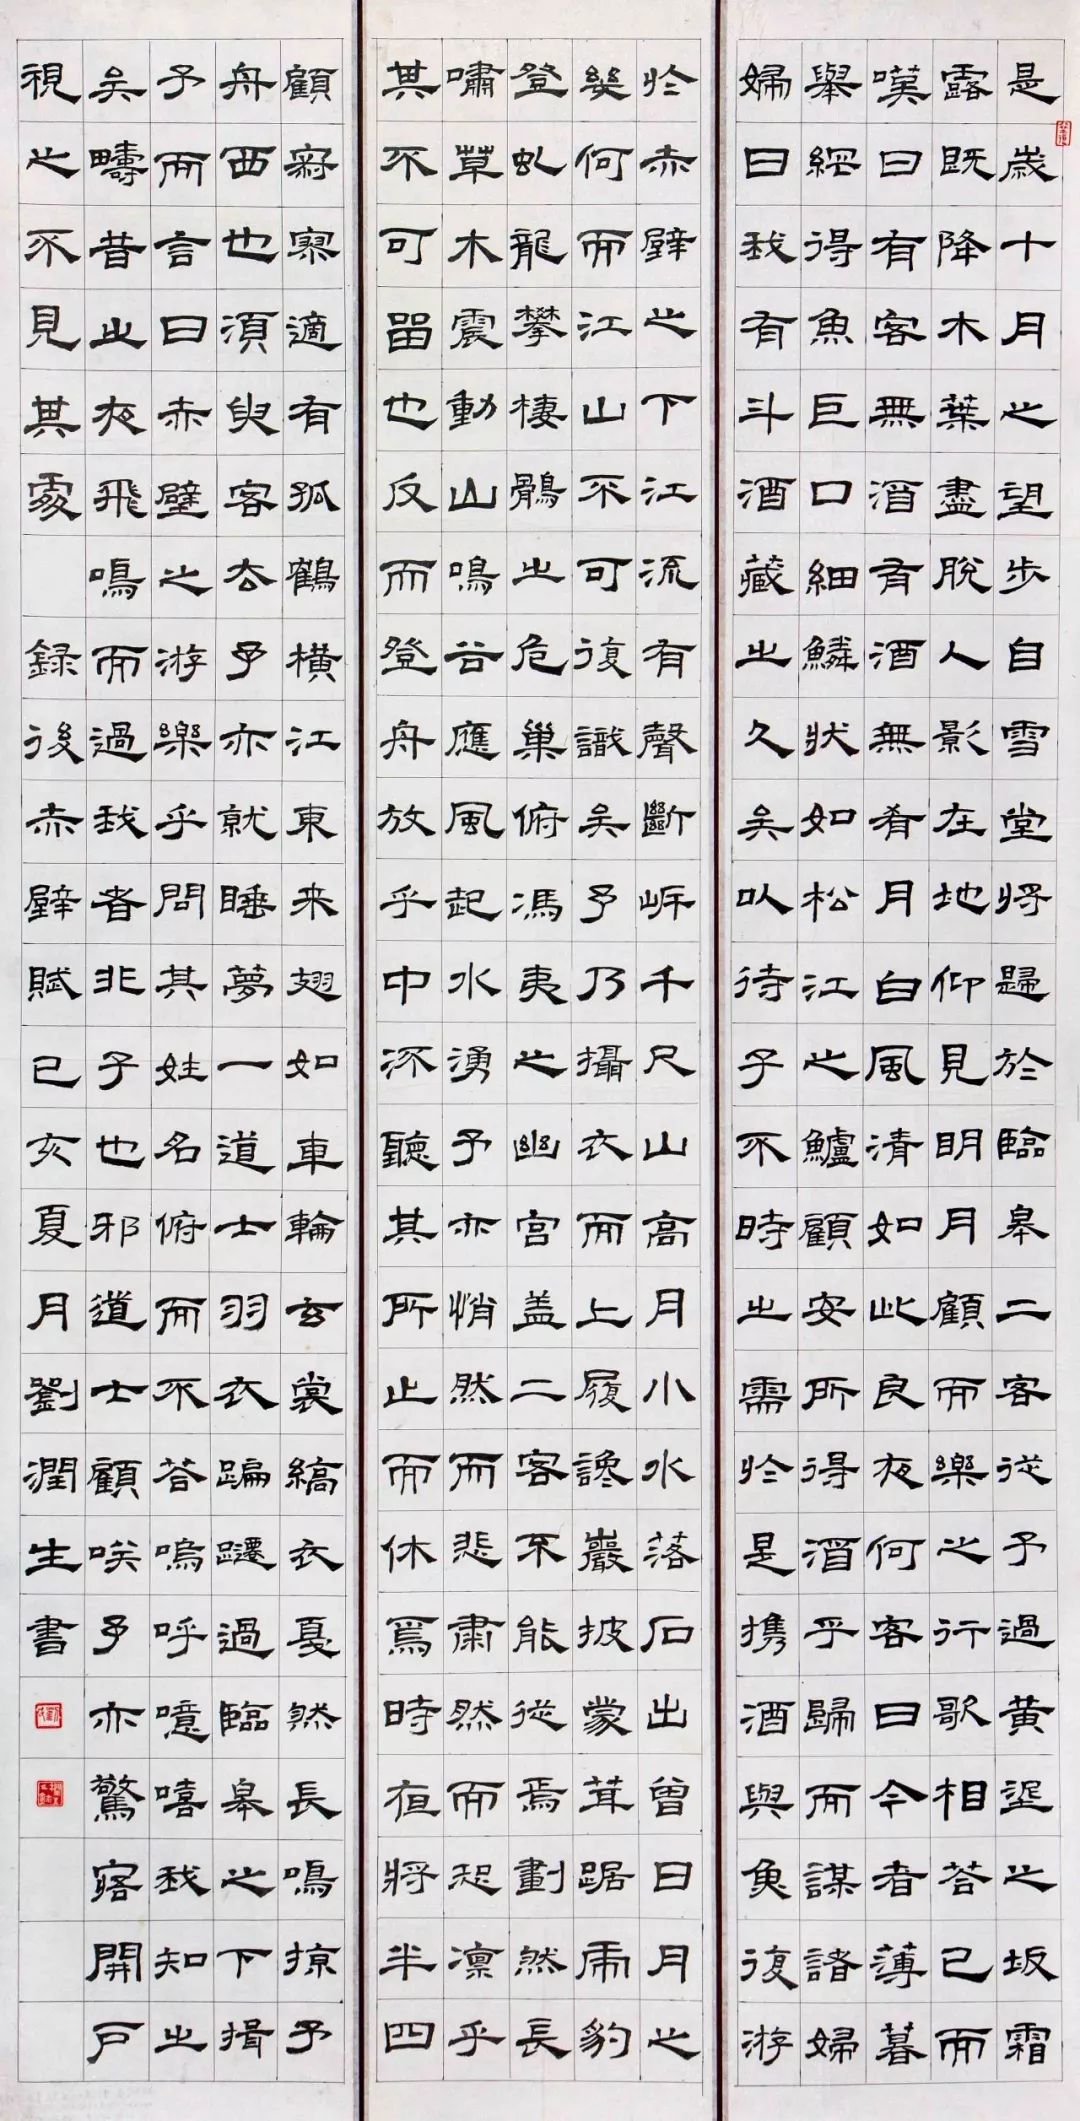 是歲十月之望步自雪堂將歸於臨皋二客從予過黃埿之坂霜
露既降木葉盡脫人影在地仰見明月顧而樂之行歌相答已而
嘆曰有客無酒有酒無肴月白風清如此良夜何客曰今者薄暮
舉網得魚巨口細鱗狀如松江之鱸顧安所得酒乎歸而謀諸婦
婦曰我有斗酒藏之久矣以待子不時之需於是携酒與魚復游
於赤壁之下江流有聲斷岸千尺山高月小水落石出曾日月之
幾何而江山不可復識矣予乃攝衣而上履巉巖披蒙茸踞虎豹
登虬龍攀棲鶻之危巢俯馮夷之幽宮盖二客不能從焉劃然長
嘯草木震動山鳴谷應風起水湧予亦悄然而悲肅然而恐凛乎
其不可留也反而登舟放乎中流聽其所止而休焉時夜將半四
顧寂寥適有孤鶴橫江東来翅如車輪玄裳縞衣戛然長鳴掠予
舟西也須臾客去予亦就睡夢一道士羽衣蹁躚過臨皋之下揖
予而言曰赤壁之游樂乎問其姓名俯而不答嗚呼噫嘻我知之
矣疇昔之夜飛鳴而過我者非子也邪道士顧笑予亦驚寤開戶
視之不見其處 録後赤壁賦己亥夏月劉潤生書